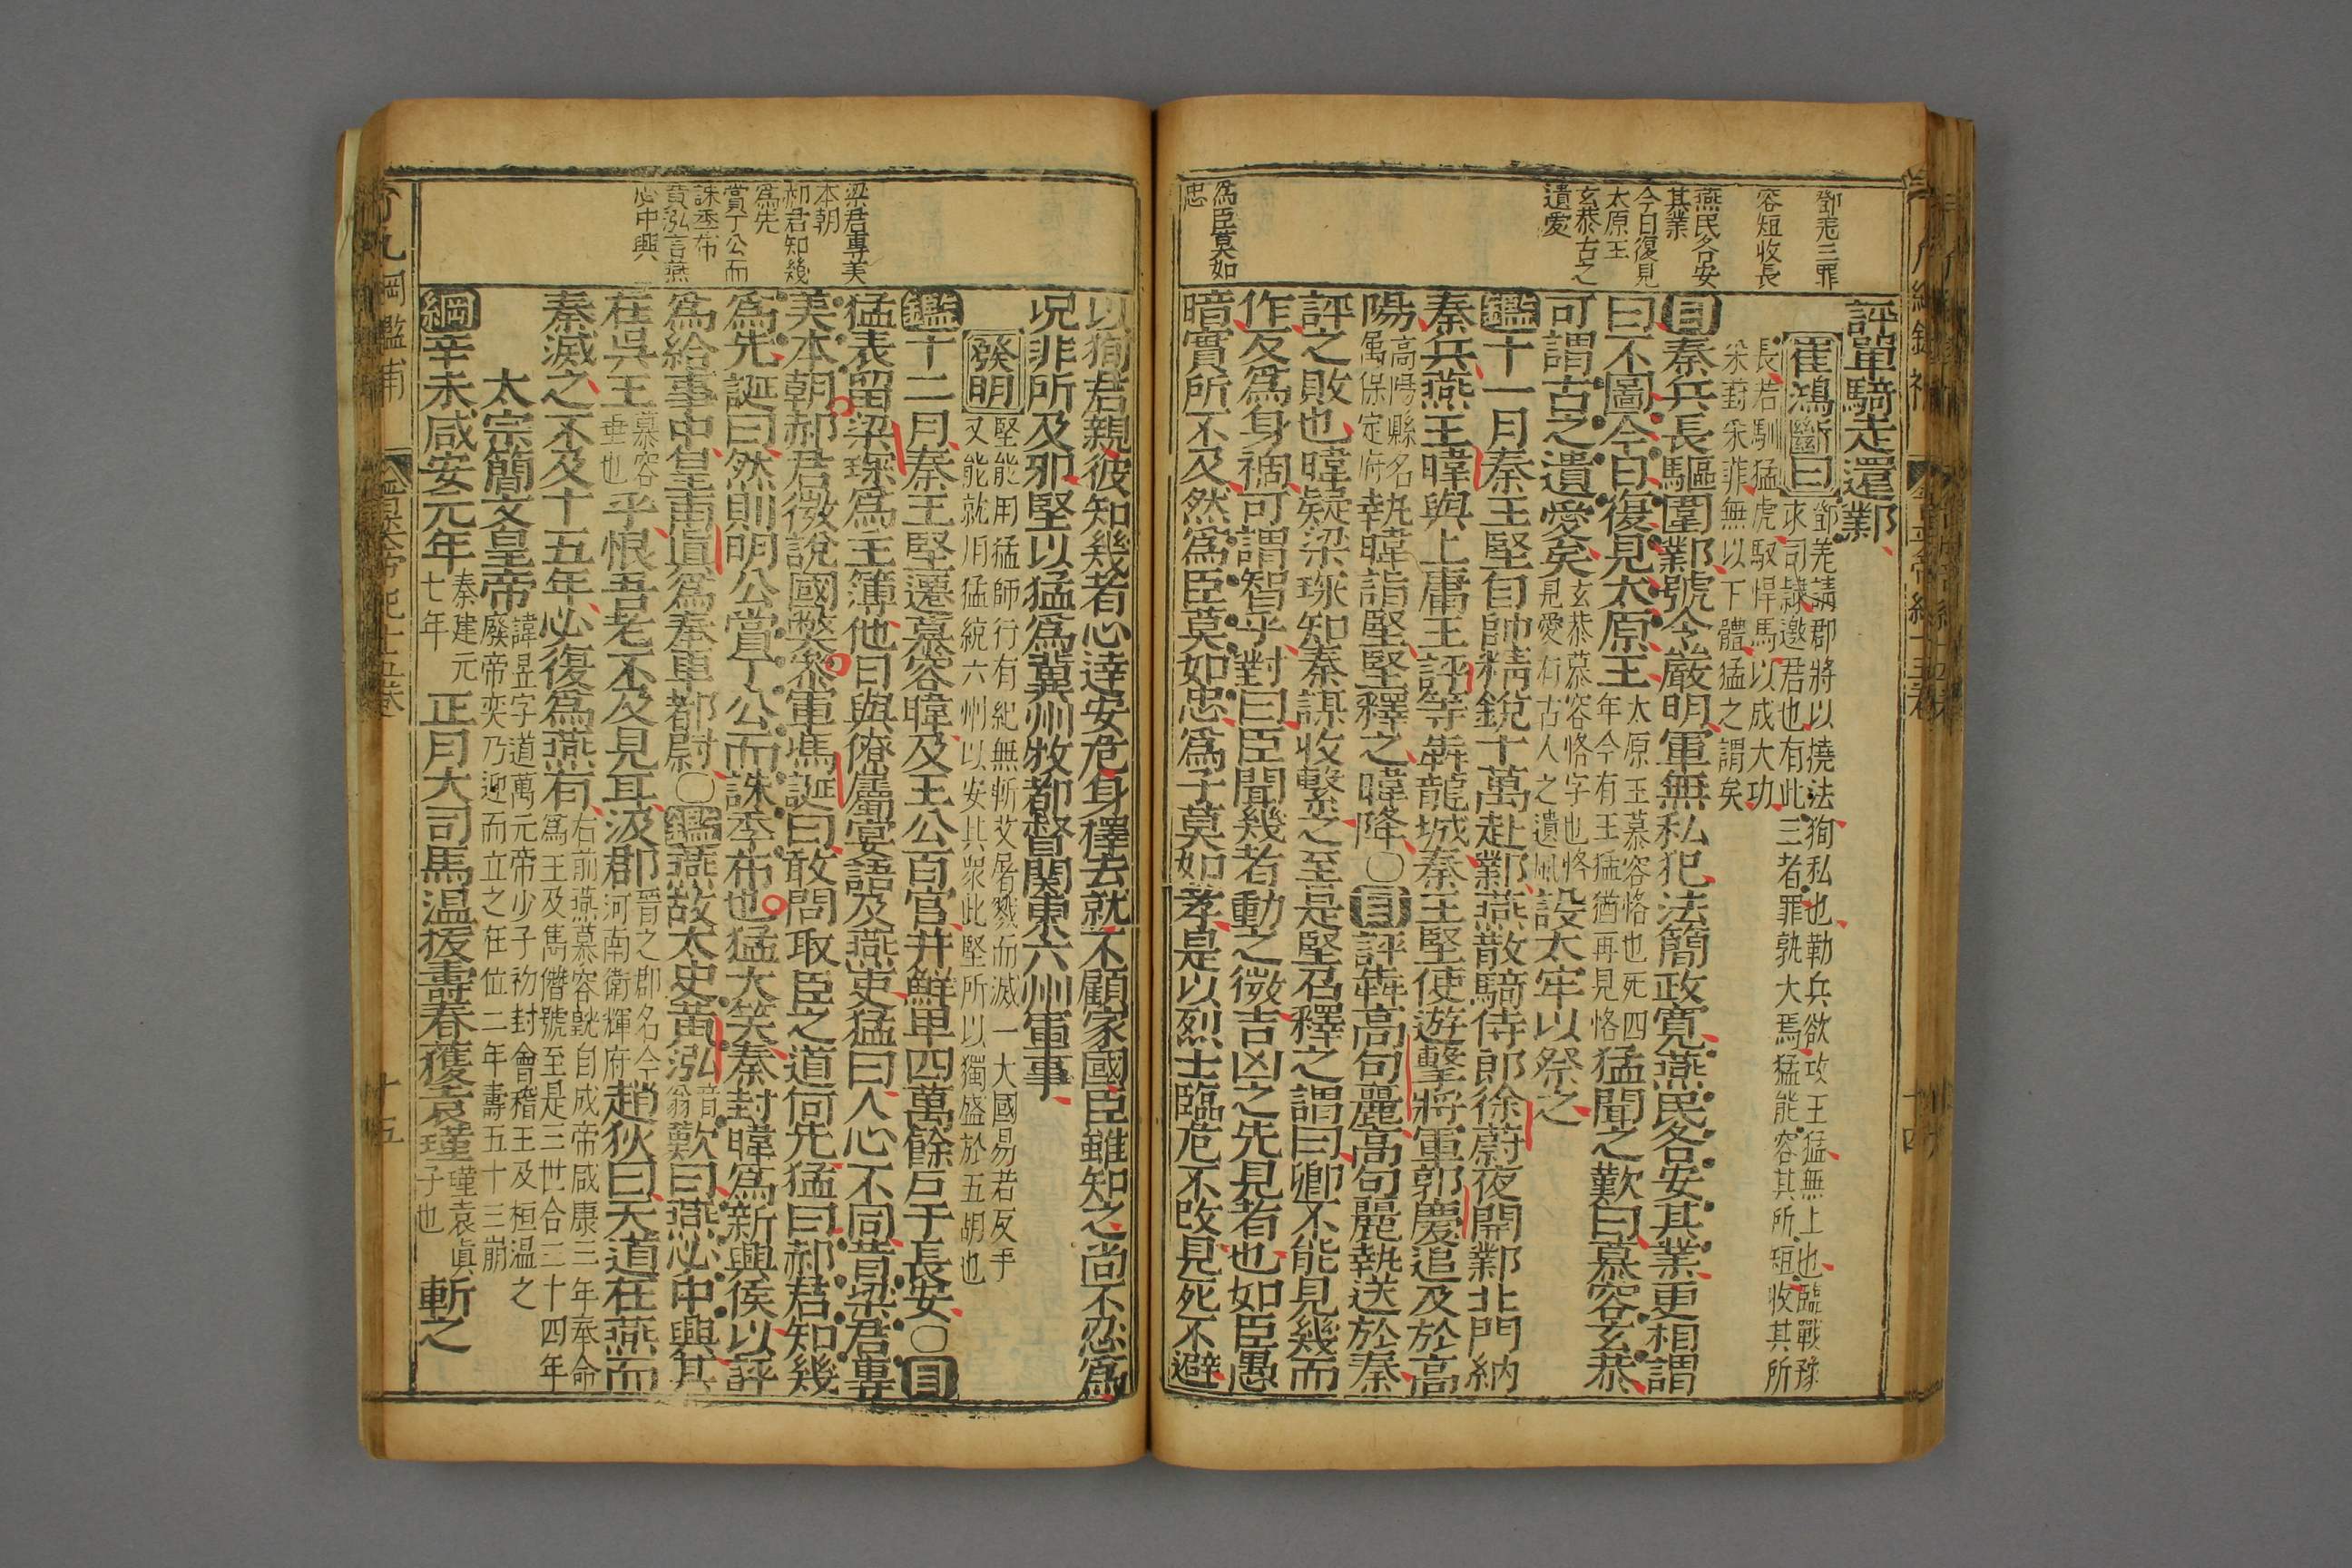 鄧羌三罪
容短收長
燕民各安
其業
今日復見
太原王
玄恭古之
遺愛
為臣莫如
忠
評單騎走還鄴
崔鴻斷曰
鄧羌請郡將以撓法狥私也勒兵欲攻王猛無上也臨戰豫
求司隸邀君也有此三者罪孰大焉猛能容其所短收其所
長若馴猛虎馭悍馬以成大功
采葑采菲無以下體猛之謂矣
目秦兵長驅圍鄴號令嚴明軍無私犯法簡政寬燕民各安其業更相謂
曰不圖今日復見太原王
太原王慕容恪也死四
年今有王猛猶再見恪
猛聞之歎曰慕容玄恭
可謂古之遺愛矣
玄恭慕容恪字也恪
見愛有古人之遺風
設太牢以祭之
鑑十一月秦王堅自帥精銳十萬赴鄴燕散騎侍郎徐蔚夜開鄴北門納
秦兵燕王暐與上庸王評等奔龍城秦王堅使遊擊將軍郭慶追及於高
陽
高陽縣名
属保定府
執暐詣堅堅釋之暐降〇目評奔高句麗高句麗執送於秦
評之敗也暐疑梁琛知秦謀收繫之至是堅召釋之謂曰卿不能見幾而
作反為身禍可謂智乎對曰臣聞幾者動之微吉凶之先見者也如臣愚
暗實所不及然為臣莫如忠為子莫如孝是以烈士臨危不改見死不避
梁君專美
本朝
郝君知幾
為先
賞丁公而
誅季布
黃泓言燕
必中興
以狥君親彼知幾者心達安危身擇去就不顧家國臣雖知之尚不忍為
况非所及邪堅以猛為冀州牧都督関東六州軍事
發明
堅能用猛師行有紀無斬艾屠戮而滅一大國易若反手
又能就用猛統六州以安其衆此堅所以獨盛於五胡也
鑑十二月秦王堅遷慕容暐及王公百官并鮮卑四萬餘戶于長安〇目
猛表留梁琛為主簿他日與僚屬宴語及燕吏猛曰人心不同昔梁君專
美本朝郝君微說國弊參軍馮誕曰敢問取臣之道何先猛曰郝君知幾
為先誕曰然則明公賞丁公而誅季布也猛大笑秦封暐為新興侯以評
為給事中皇甫真為奉車都尉〇鑑燕故太史黃泓
音
翁
歎曰燕必中興其
在吳王
慕容
垂也
乎恨吾老不及見耳汲郡
晉之郡名今
河南衛輝府
趙狄曰天道在燕而
秦滅之不及十五年必復為燕有
右前燕慕容皝自成帝咸康三年奉命
為王及雋僭號至是三世合三十四年
太宗簡文皇帝
諱昱字道萬元帝少子初封會稽王及桓温之
廢帝奕乃迎而立之在位二年壽五十三崩
綱辛未咸安元年
秦建元
七年
正月大司馬温拔壽春獲袁瑾
瑾袁真
子也
斬之
十五